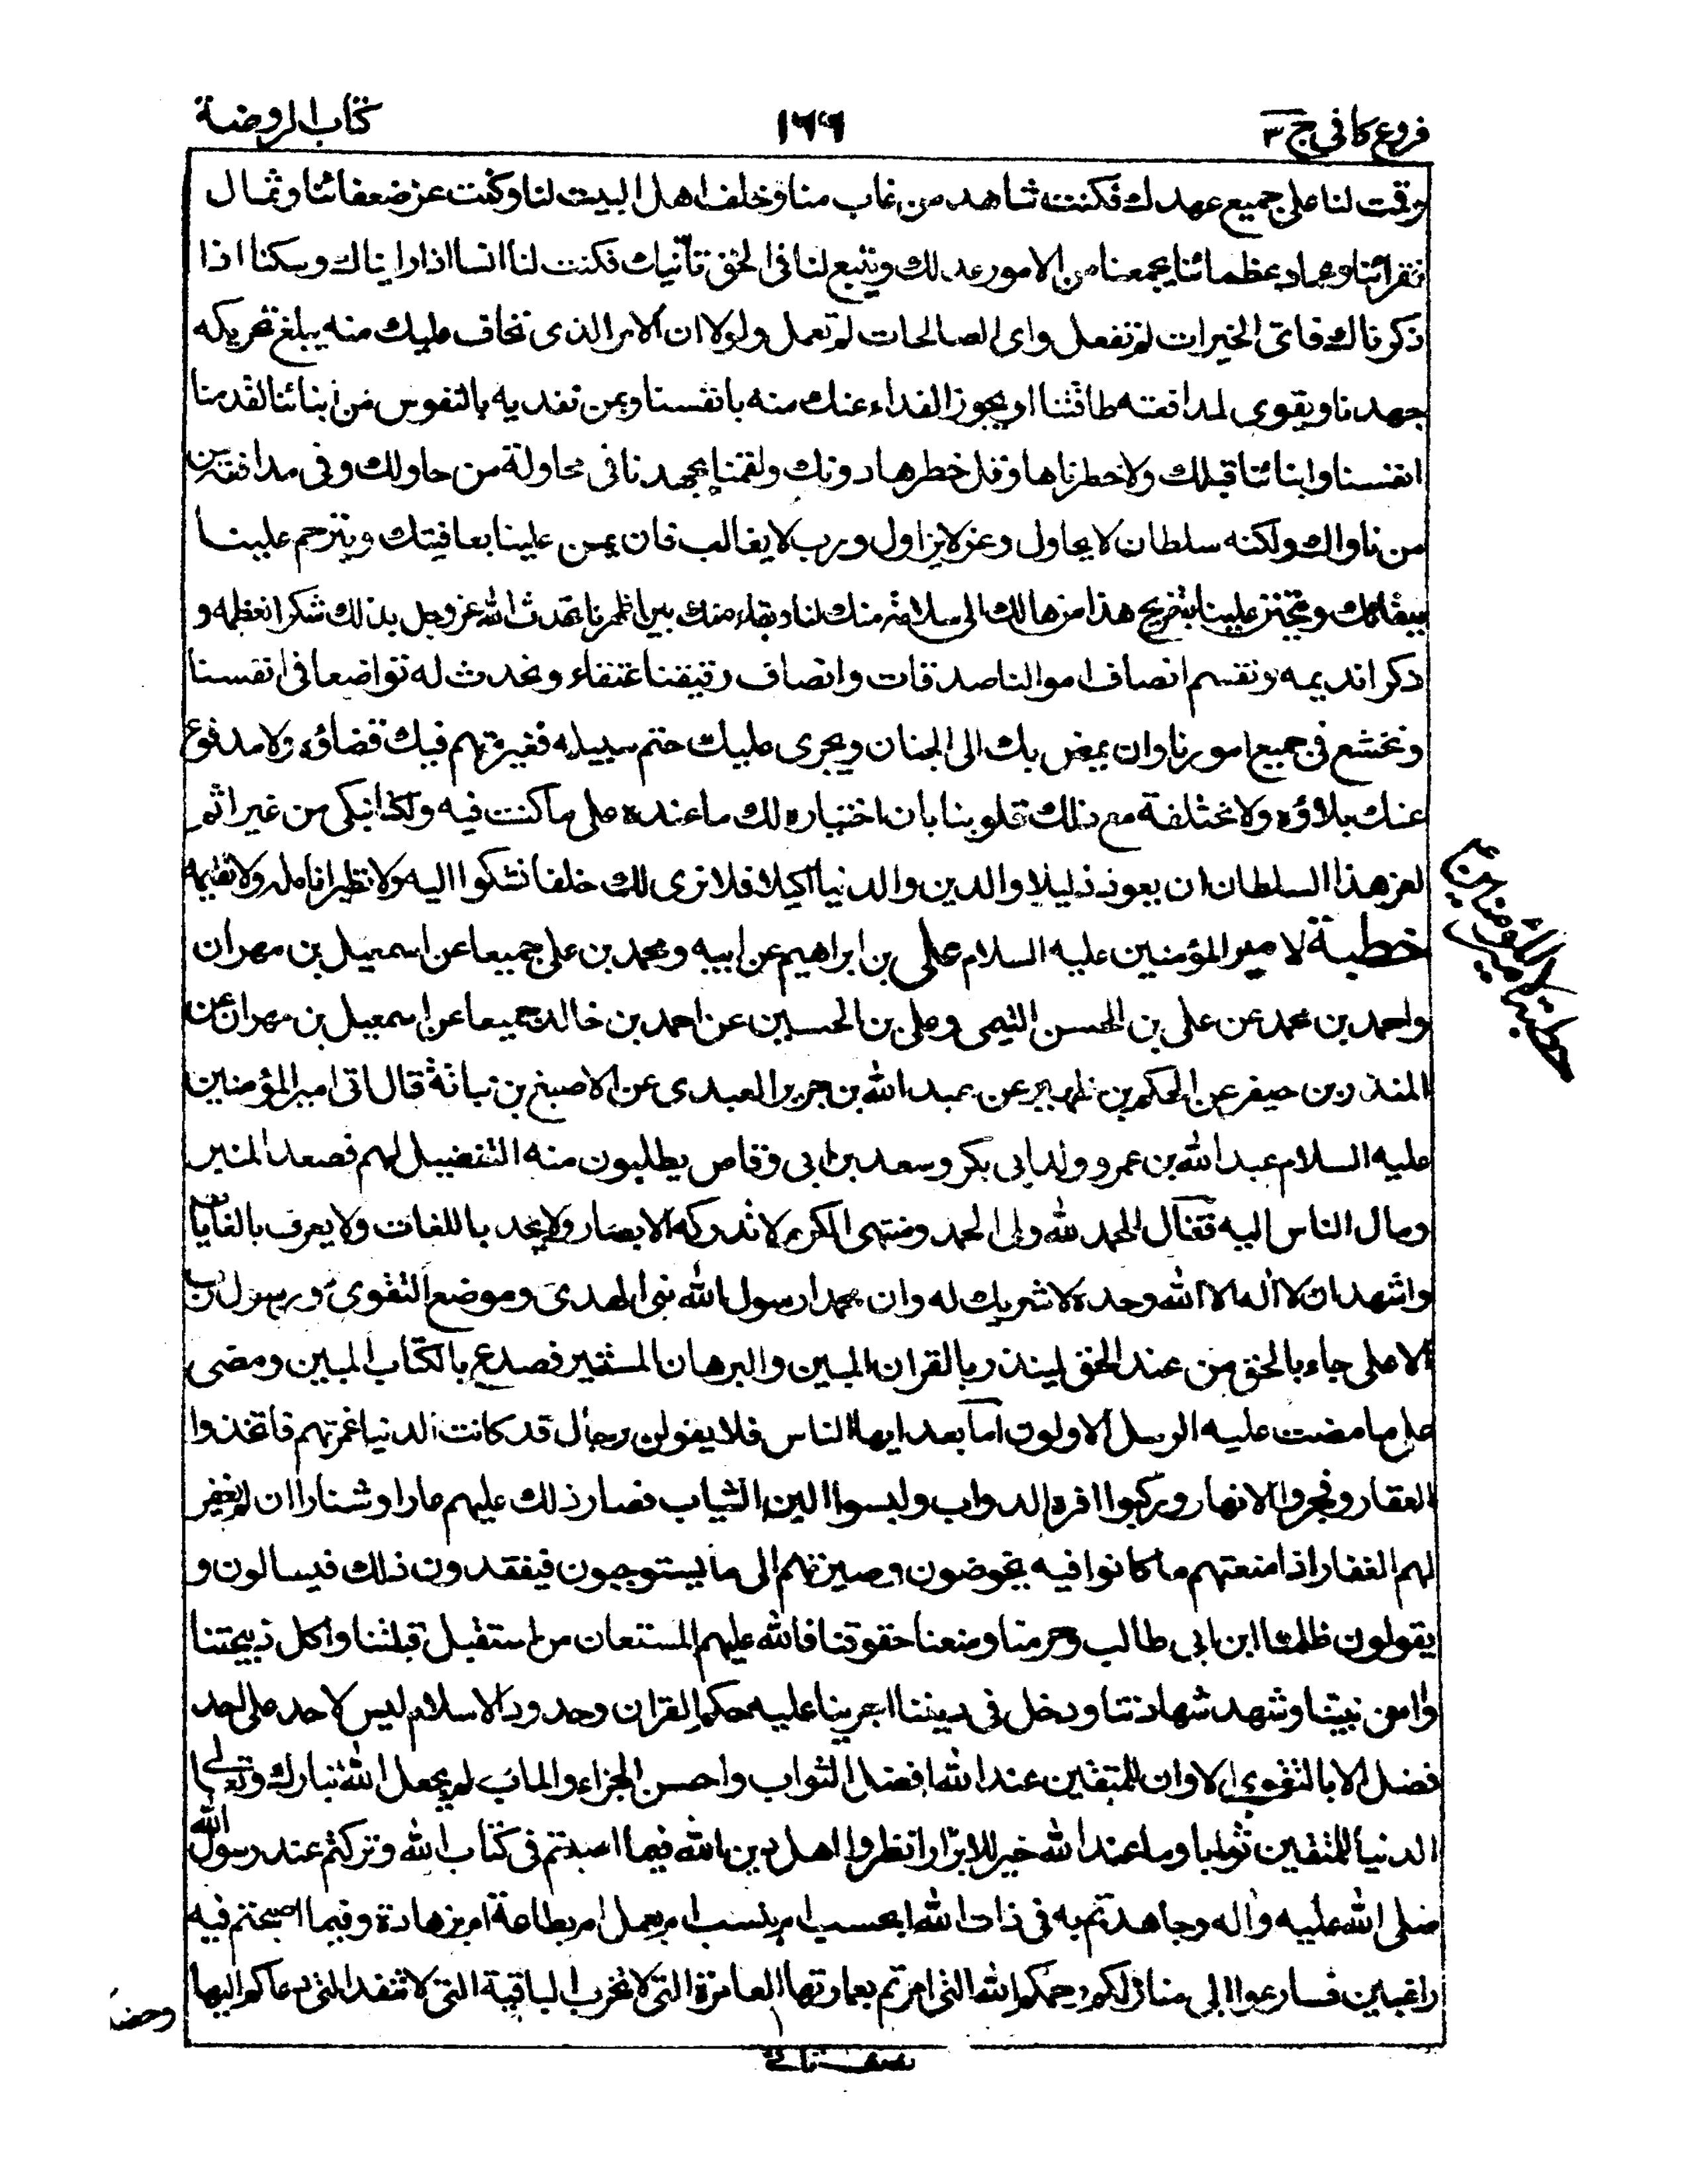 فروع كافي ج ٣
١٦٦
كتاب الروضة
وقمت لنا على جميع عهدك فكنت شاهد من غاب منا وخلف اهل البيت لنا وكنت عز ضعفائنا وثمال
فقرائنا وعماد عظمائنا يجمعنا من الامور عدلك ويتسع لنا في الحق تأنيك فكنت لنا انسا اذا رايناك وسكنا اذا
ذكرناك فاي الخيرات لم تفعل واي الصالحات لم تعمل ولولا ان الامر الذي نخاف عليك منه يبلغ تحريكه
جهدنا ويقوى لمدافعته طاقتنا او يجوز الفداء عنك منه بانفسنا وبمن نفديه بالنفوس من ابنائنا لقدمنا
انفسنا وابنائنا قبلك ولاخطرناها وقل خطرها دونك ولقمنا بجهدنا في محاولة من حاولك وفي مدافعة
من ناواك ولكنه سلطان لا يحاول وعز لا يزاول ورب لا يغالب فان يمنن علينا بعافيتك ويترحم علينا
ببقائك ويتحنن علينا بتفريج هذا من حالك الى سلامة منك لنا وبقاء منك بين اظهرنا نحدث الله عز وجل بذلك شكرا نعظمه و
ذكرا نديمه ونقسم انصاف اموالنا صدقات وانصاف رقيقنا عتقاء ونحدث له تواضعا في انفسنا
ونخشع في جميع امورنا وان يمض بك الى الجنان ويجري عليك حتم سبيله فغير متهم فيك قضاؤه ولا مدفوع
عنك بلاؤه ولا مختلفة مع ذلك قلوبنا بان اختياره لك ما عنده على ما كنت فيه ولكنا نبكي من غير اثم
لعز هذا السلطان ان يعود ذليلا وللدين والدنيا اكيلا فلا نرى لك خلفا نشكوا اليه ولا نظيرا نامله ولا نقيمه
خطبة لامير المؤمنين عليه السلام علي بن ابراهيم عن ابيه ومحمد بن علي جميعا عن اسمعيل بن مهران
واحمد بن محمد عن علي بن الحسن التيمي وعلي بن الحسين عن احمد بن خالد جميعا عن اسمعيل بن مهران عن
المنذر بن جيفر عن الحكم بن ظهير عن عبد الله بن جرير العبدي عن الاصبغ بن نباتة قال اتى امير المؤمنين
عليه السلام عبد الله بن عمر وولد ابي بكر وسعد بن ابي وقاص يطلبون منه التفضيل لهم فصعد المنبر
ومال الناس اليه فقال الحمد لله ولي الحمد ومنتهى الكرم لا تدركه الابصار ولا يحد باللغات ولا يعرف بالغايات
واشهد ان لا اله الا الله وحده لا شريك له وان محمدا رسول الله نبي الهدى وموضع التقوى ورسول الرب
الاعلى جاء بالحق من عند الحق لينذر بالقران المبين والبرهان المستنير فصدع بالكتاب المبين ومضى
على ما مضت عليه الرسل الاولون اما بعد ايها الناس فلا يقولن رجال قد كانت الدنيا غمرتهم فاتخذوا
العقار وفجروا الانهار وركبوا افره الدواب ولبسوا الين الثياب فصار ذلك عليهم عارا وشنارا ان لم يغفر
لهم الغفار اذا منعتهم ما كانوا فيه يخوضون وصيرتهم الى ما يستوجبون فيفقدون ذلك فيسالون و
يقولون ظلمنا ابن ابي طالب وحرمنا ومنعنا حقوقنا فالله عليهم المستعان من استقبل قبلتنا واكل ذبيحتنا
وامن نبينا وشهد شهادتنا ودخل في ديننا اجرينا عليه حكم القران وحدود الاسلام ليس لاحد على احد
فضل الا بالتقوى الا وان للمتقين عند الله افضل الثواب واحسن الجزاء والماب لم يجعل الله تبارك وتعالى
الدنيا للمتقين ثوابا وما عند الله خير للابرار انظروا اهل دين الله فيما اصبتم في كتاب الله وتركتم عند رسول الله
صلى الله عليه واله وجاهدتم به في ذات الله ابحسب ام بنسب ام بعمل ام بطاعة ام زهادة وفيما اصبحتم فيه
راغبين فسارعوا الى منازلكم رحمكم الله التي امرتم بعمارتها العامرة التي لا تخرب الباقية التي لا تنفد التي دعاكم اليها